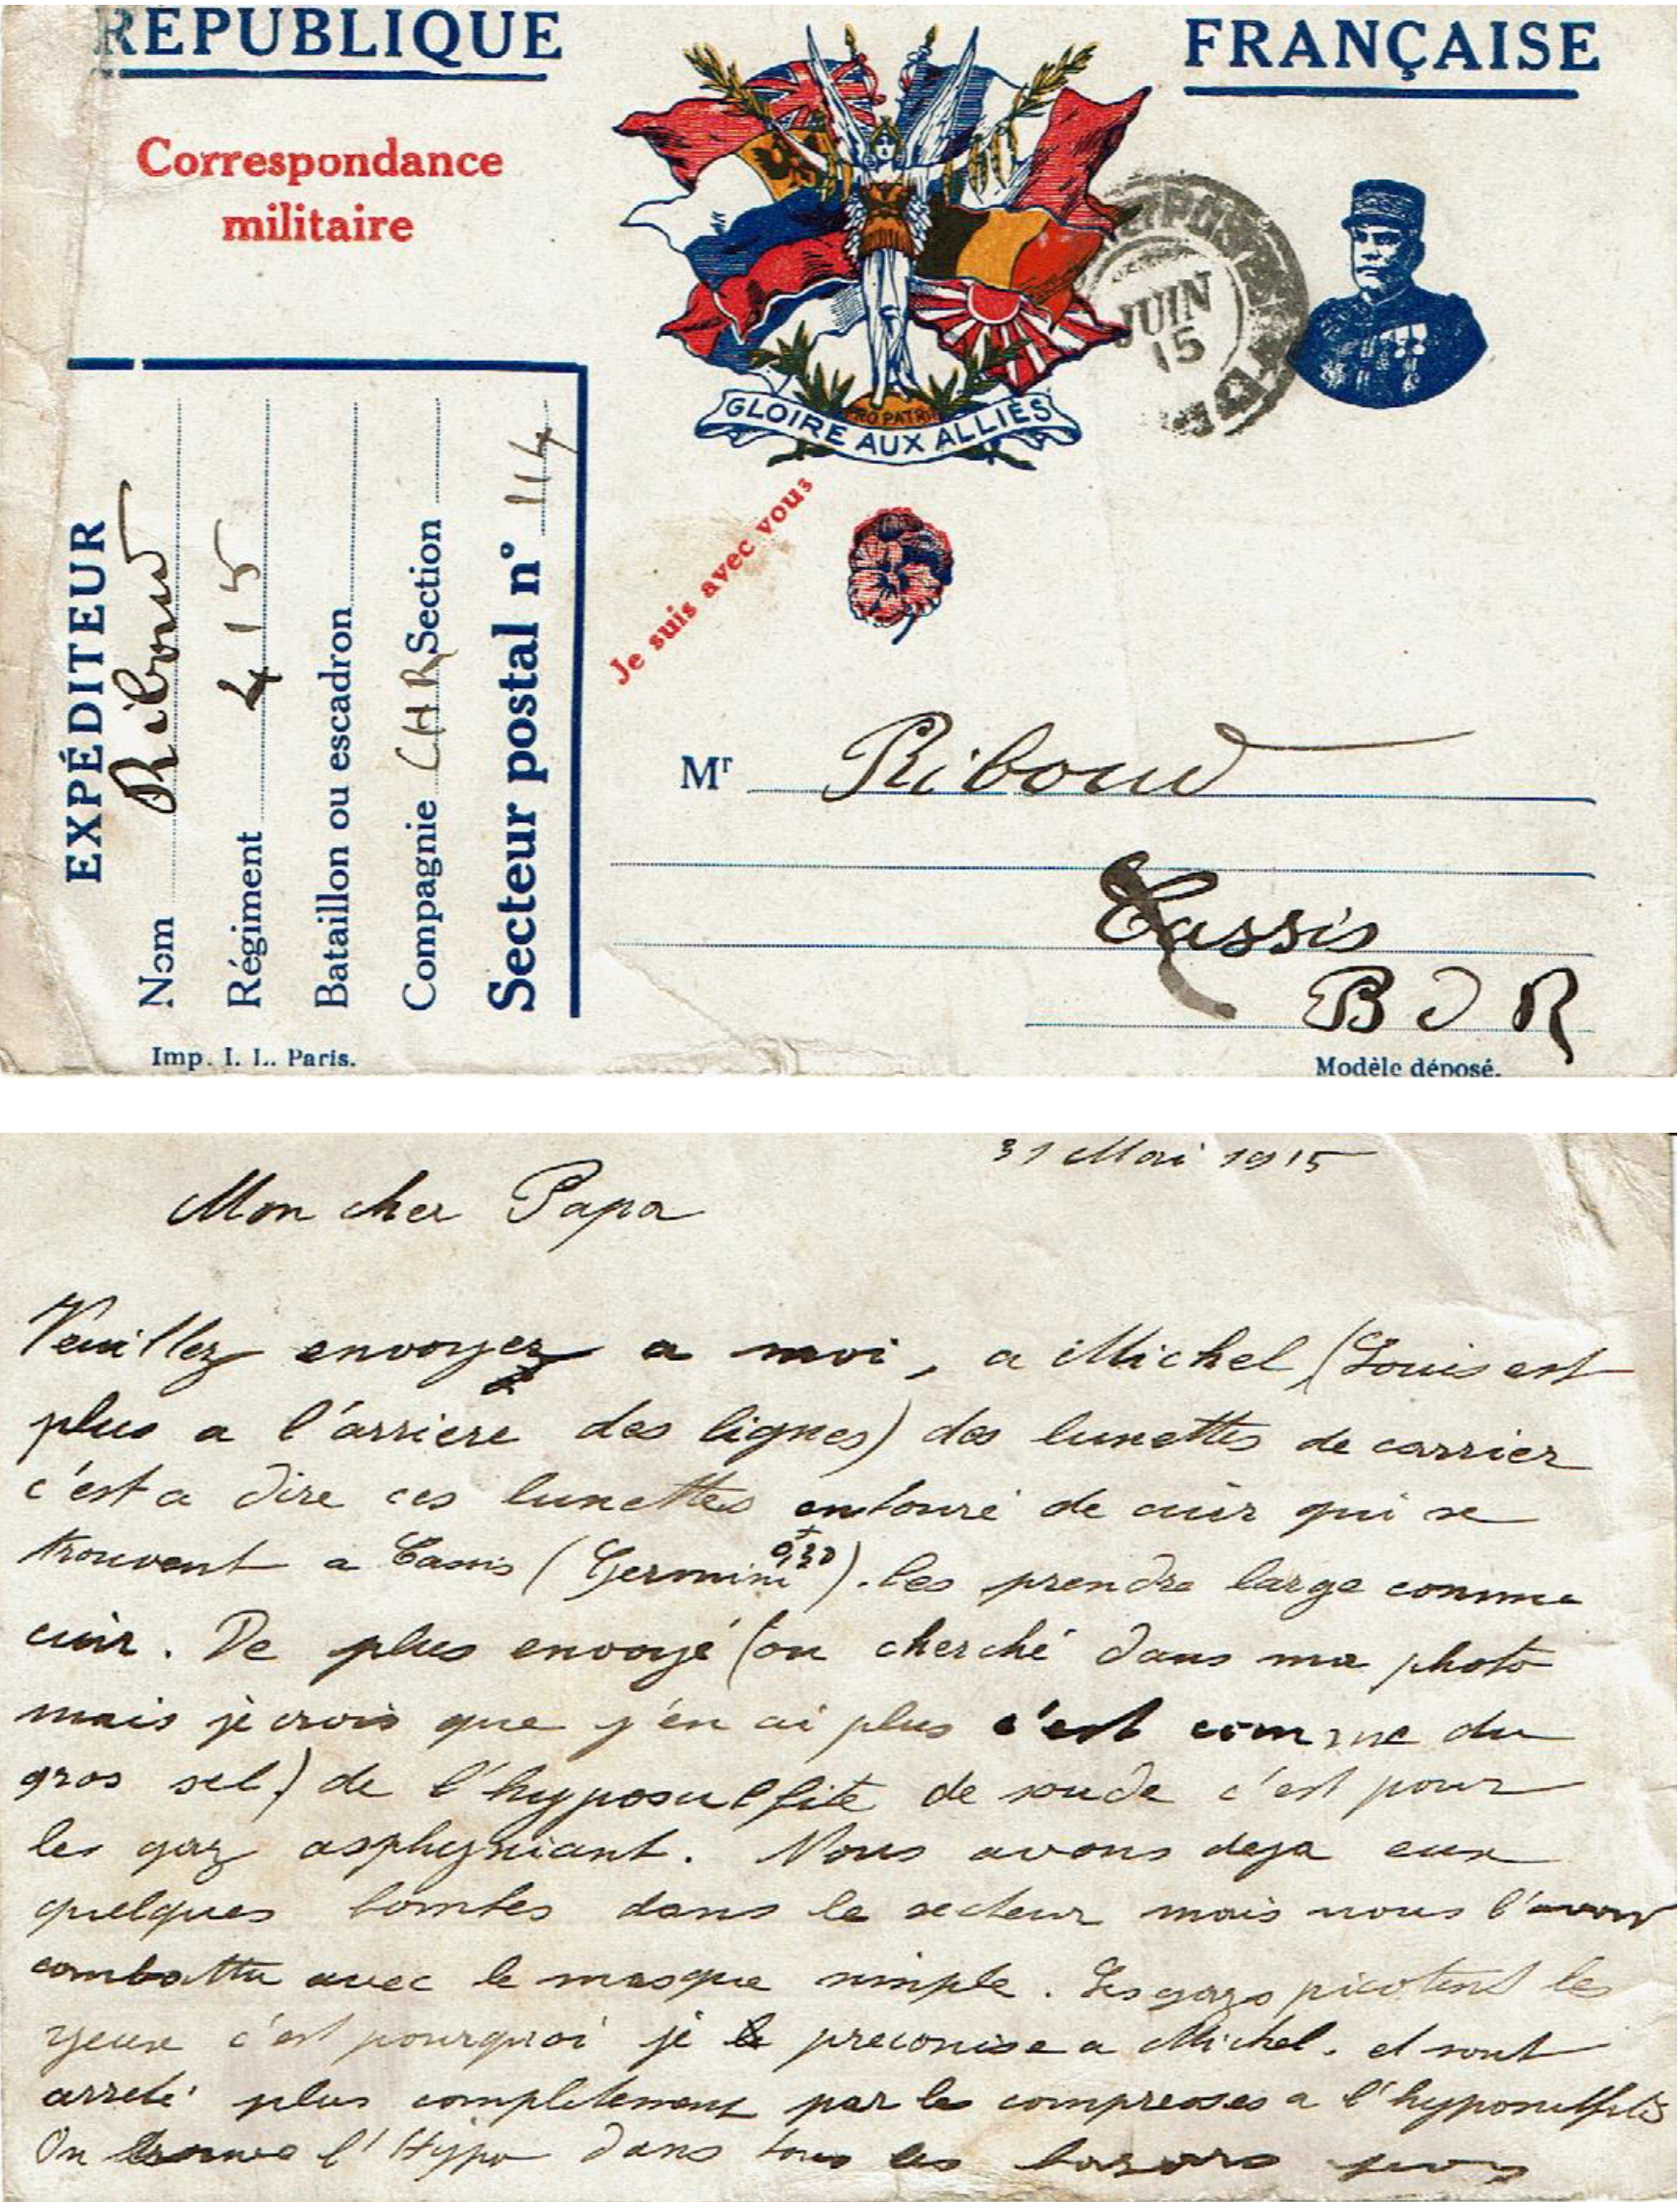 RÉPUBLIQUE FRANÇAISE
Correspondance
militaire
GLOIRE AUX ALLIÉS
PRO PATRIA
JUIN
15
Je suis avec vous
EXPÉDITEUR
Nom Riboud
Régiment 415
Bataillon ou escadron
Compagnie CHR Section
Secteur postal n° 114
Imp. I. L. Paris.
Mr Riboud
Cassis
B D R
Modèle déposé.
31 Mai 1915
Mon cher Papa
Veuillez envoyez a moi, a Michel (Louis est
plus a l'arriere des lignes) des lunettes de carrier
c'est a dire ces lunettes entouré de cuir qui se
trouvent a Cassis (Germini 0,30). les prendre large comme
cuir. De plus envoyé (ou cherché dans ma photo
mais je crois que j'en ai plus c'est comme du
gros sel) de l'hyposulfite de soude c'est pour
les gaz asphyxiant. Nous avons deja eux
quelques bombes dans le secteur mais nous l'avons
combattu avec le masque simple. Les gazs picotent les
yeux c'est pourquoi je le preconise a Michel. et sont
arreté plus completement par les compresses a l'hyposulfite
On trouve l'Hypo dans tous les bazars